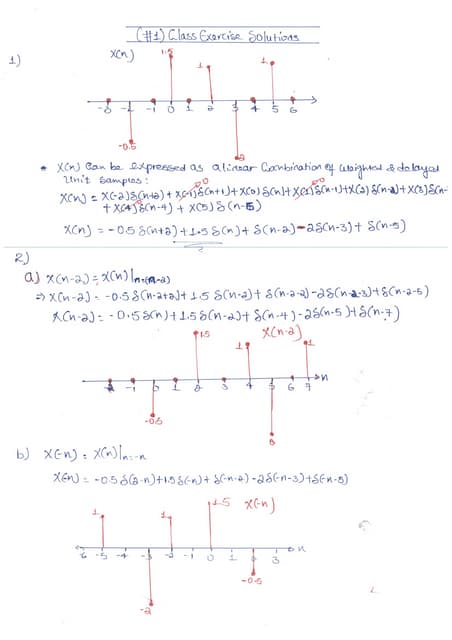 (#1) Class Exercise Solutions
1)
X(n)
1.5
1
1
-2 -1 0 1 2 3 4 5 6
-0.5
-2
* X(n) Can be expressed as a linear Combination of weighted & delayed
Unit Samples:
X(n) = X(-2)δ(n+2) + X(-1)δ(n+1) + X(0)δ(n) + X(1)δ(n-1) + X(2)δ(n-2) + X(3)δ(n-
+ X(4)δ(n-4) + X(5)δ(n-5)
X(n) = -0.5 δ(n+2) + 1.5 δ(n) + δ(n-2) - 2δ(n-3) + δ(n-5)
2)
a) X(n-2) = X(n)|n=(n-2)
⇒ X(n-2) = -0.5δ(n-2+2) + 1.5 δ(n-2) + δ(n-2-2) - 2δ(n-2-3) + δ(n-2-5)
X(n-2) = -0.5δ(n) + 1.5δ(n-2) + δ(n-4) - 2δ(n-5) + δ(n-7)
1.5
X(n-2)
1
1
-1 0 1 2 3 4 5 6 7 n
-0.5
b) X(-n) = X(n)|n=-n
X(-n) = -0.5δ(2-n) + 1.5δ(-n) + δ(-n-2) - 2δ(-n-3) + δ(-n-5)
1.5 X(-n)
1
1
-6 -5 -4 -3 -2 -1 0 1 2 3 n
-0.5
-2